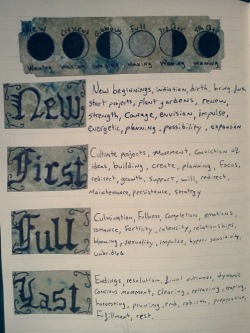 New Crescent Gibbous Full 3rd Qtr 4th Qtr
Waxing Waxing Waxing Waning Waning
New
New beginnings, initiation, birth, bring forth
start projects, plant gardens, renew,
strength, Courage, envision, impulse,
energetic, planning, possibility, expansion
First
Cultivate projects, Movement, Conviction of
ideas, building, create, planning, focus,
redirect, growth, support, will, redirect,
Maintenance, persistence, strategy
Full
Culmination, Fullness, completion, emotions,
romance, fertility, intensity, relationships,
blooming, sexuality, impulse, hyper sensitivity,
unbridled
Last
Endings, resolution, final outcomes, dynamic
Conscious movement, clearing, releasing, reaping,
harvesting, pruning, end, rebirth, preparation,
Fulfillment, rest